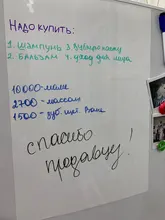 НАДО КУПИТЬ:
1. ШАМПУНЬ 3. ЗУБНУЮ ПАСТУ
2. БАЛЬЗАМ 4. УХОД ДЛЯ ЛИЦА
10000 -
2700 - массаж
1500 - зуб. щет.
спасибо
продавцу!